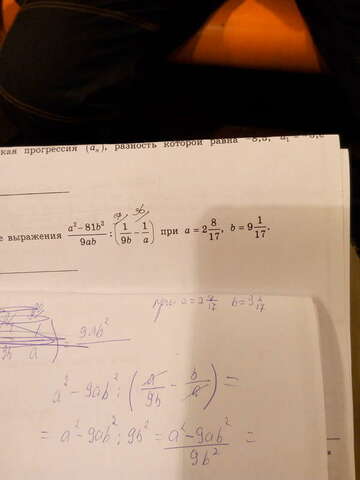 кая прогрессия (aₙ), разность которой равна
е выражения \frac{a²-81b²}{9ab} : (\frac{1}{9b} - \frac{1}{a}) при a = 2\frac{8}{17}, b = 9\frac{1}{17}.
9b
при
9ab²
a² - 9ab² : (\frac{a}{9b} - \frac{b}{a}) =
= a² - 9ab² : 9b² = \frac{a² - 9ab²}{9b²} =